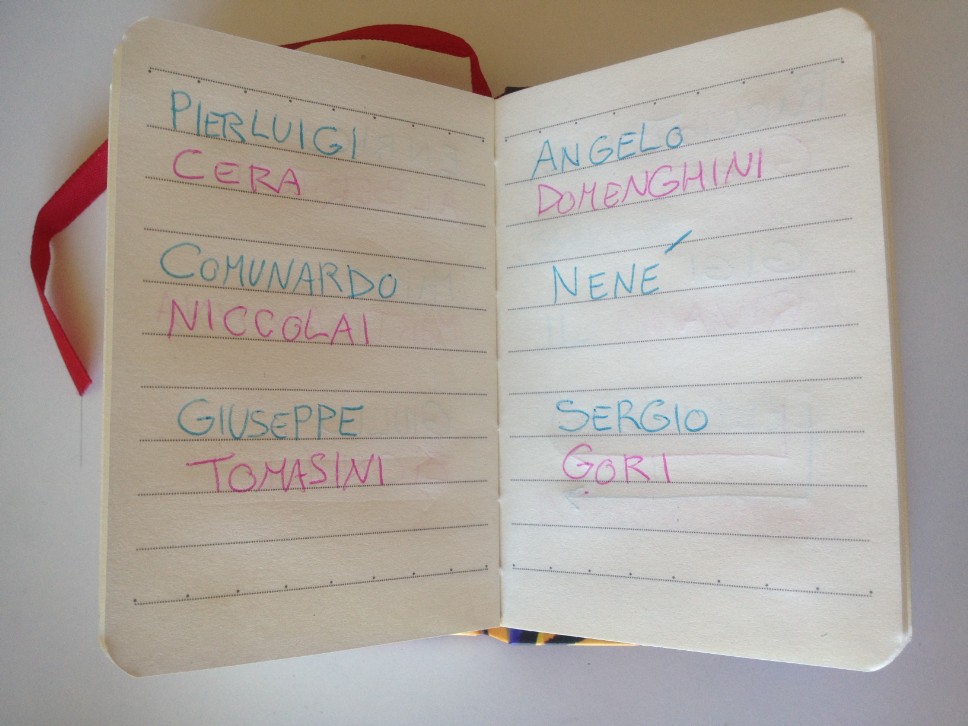 PIERLUIGI
CERA
COMUNARDO
NICCOLAI
GIUSEPPE
TOMASINI
ANGELO
DOMENGHINI
NENÉ
SERGIO
GORI